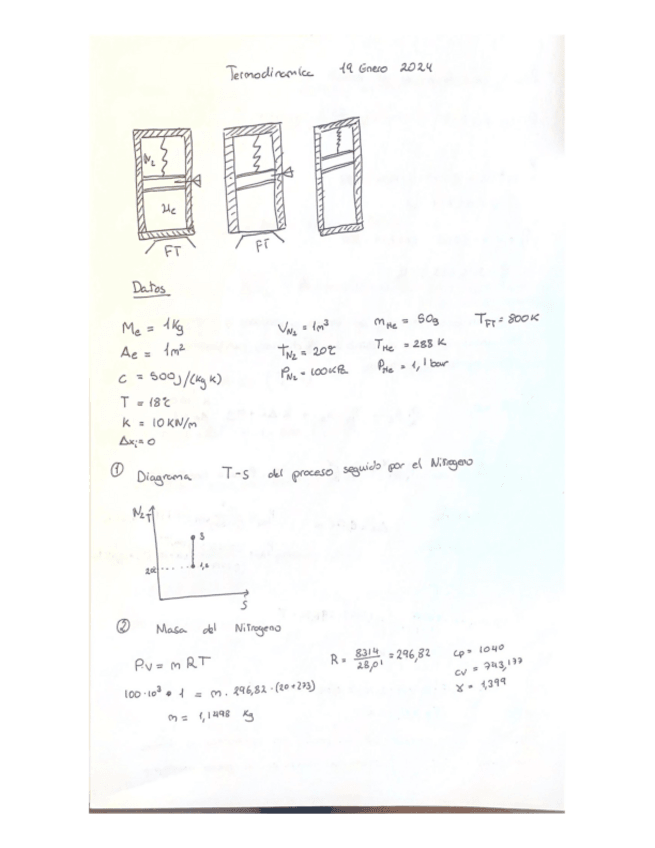 Termodinamica 19 Enero 2024
N2
He
FT
FT
Datos
Me = 1Kg
Ae = 1m²
C = 500J/(Kg K)
T = 18℃
K = 10 KN/m
Δxi=0
VN2 = 1m³
TN2 = 20℃
PN2 = 100KPa
mHe = 50g
THe = 288 K
PHe = 1,1 bar
TFT = 800K
① Diagrama T-S del proceso seguido por el Nitrogeno
N2 T
3
20℃
1,2
S
② Masa del Nitrogeno
PV = mRT
100·10³ * 1 = m. 296,82·(20+273)
m = 1,1498 Kg
R = 8314/28,01 = 296,82
cp = 1040
cv = 743,177
γ = 1,399